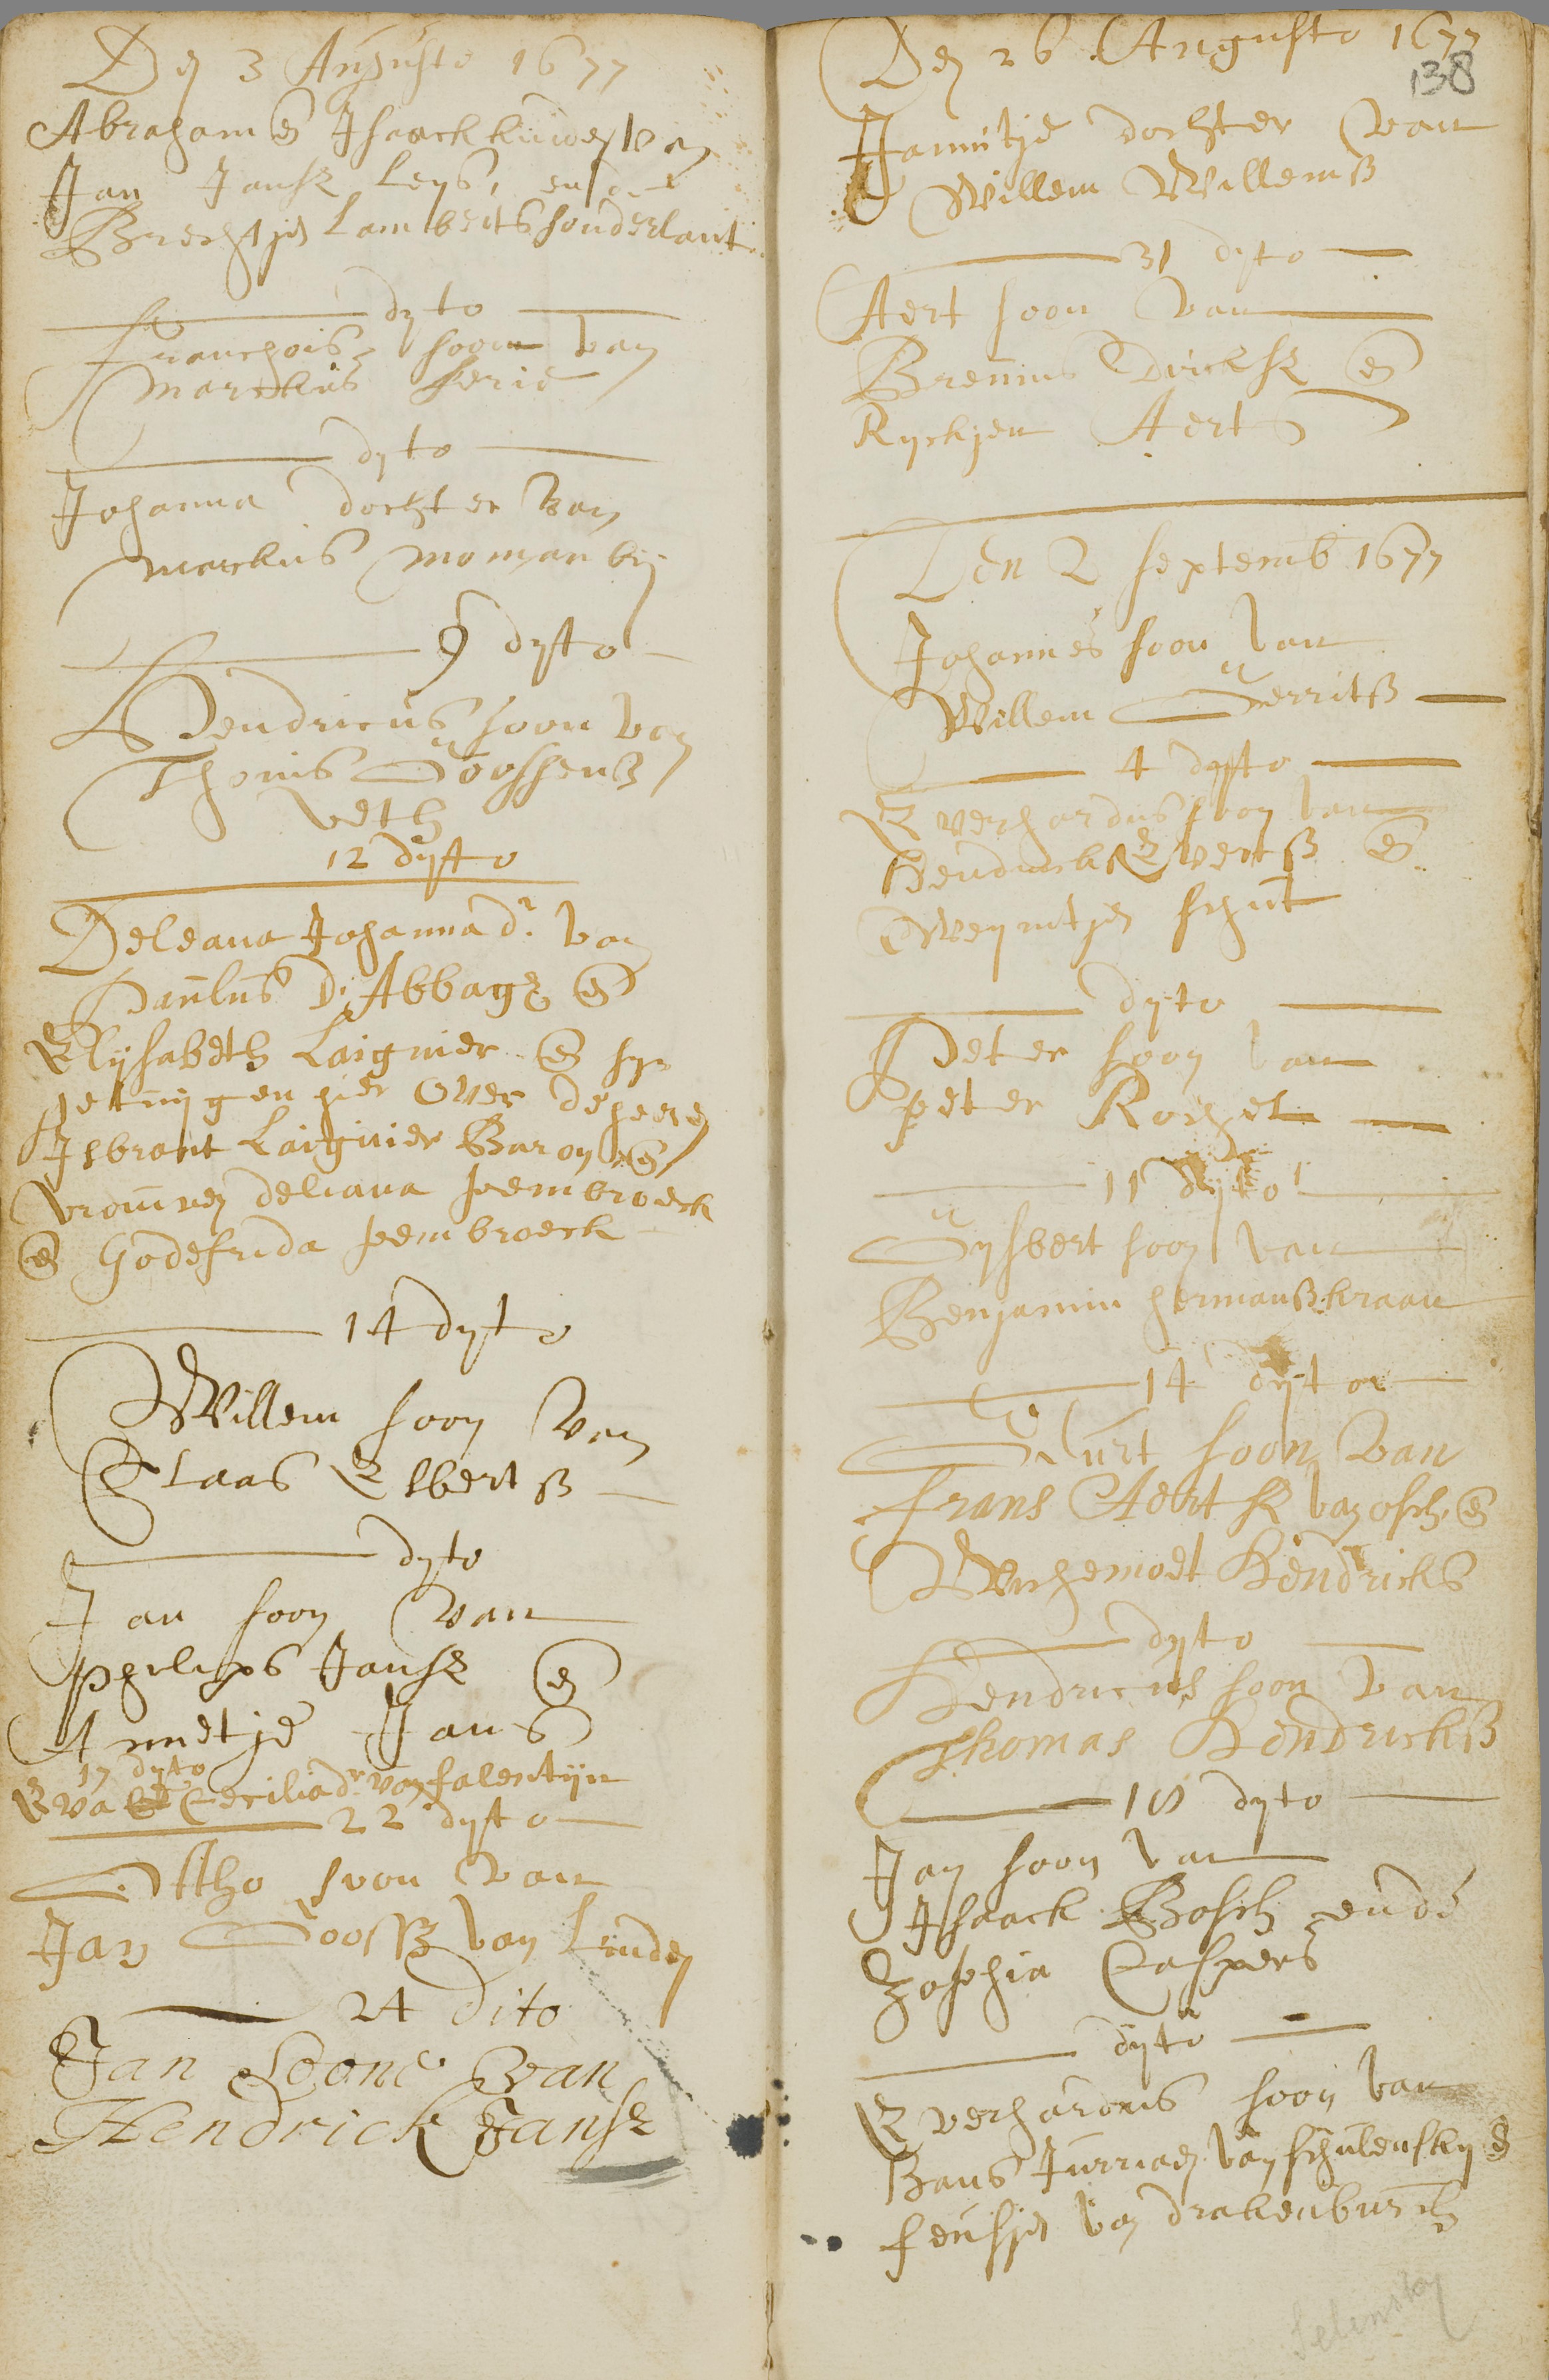 Den 3 Auguste 1677
Abraham en Jsaack kinders van
Jan Jansz Leys, ende
Brechtjen Lamberts sonderlant
dyto
Franchois soon van
Marckus ferie
dyto
Johanna dochter van
Markus Momanbij
9 dyto
Hendricus soon van
Thonis Goossensz
veth
12 dyto
Deleana Johanna dr. van
Paulus D. Abbage en
Elijsabeth Laignier en syn
getuijgen hier over de heere
Jsbrant Laignier Baron en
vrouwen deliana peembroeck
en Godefrida peembroeck
14 dyto
Willem soon van
Claas Elbertsz
dyto
Jan soon van
philips Jansz en
Annetje Jans
17 dyto
Eva en Cecilia dr. van falentijn
22 dyto
Ottho soon van
Jan Goossz van Linden
24 dito
Jan Soone van
Hendrick Jansz
Den 26 Augusto 1677
138
Jannitje dochter van
Willem Willemsz
31 dyto
Aert soon van
Brenius Dircksz en
Ryckjen Aerts
Den 2 Septemb 1677
Johannes soon van
Willem Gerritsz
4 dyto
Everhardus soon van
Hendrick Evertsz en
Weyntjen schut
dyto
Peter soon van
peter Rochel
11 dyto
Gysbert soon van
Benjamin Hermansz kraan
14 dyto
Guurt soon van
frans Aertsz van osch en
Wychemoet Hendricks
dyto
Hendricus soon van
Thomas Hendricksz
18 dyto
Jan soon van
Jsaack Bosch ende
Zophia Caspers
dyto
Everhardus soon van
Hans Jurriaen van schulensky en
fensjen van drakenburch
Selensky